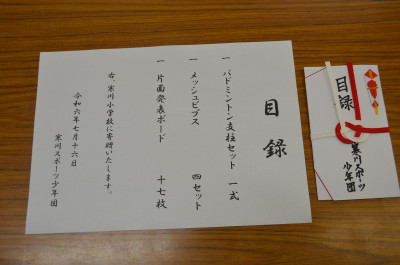 目録
一 バドミントン支柱セット 一式
一 メッシュビブス 四セット
一 片面発表ボード 十七枚
右、寒川小学校に寄贈いたします。
令和六年七月十六日
寒川スポーツ少年団
目録
寒川スポーツ
少年団